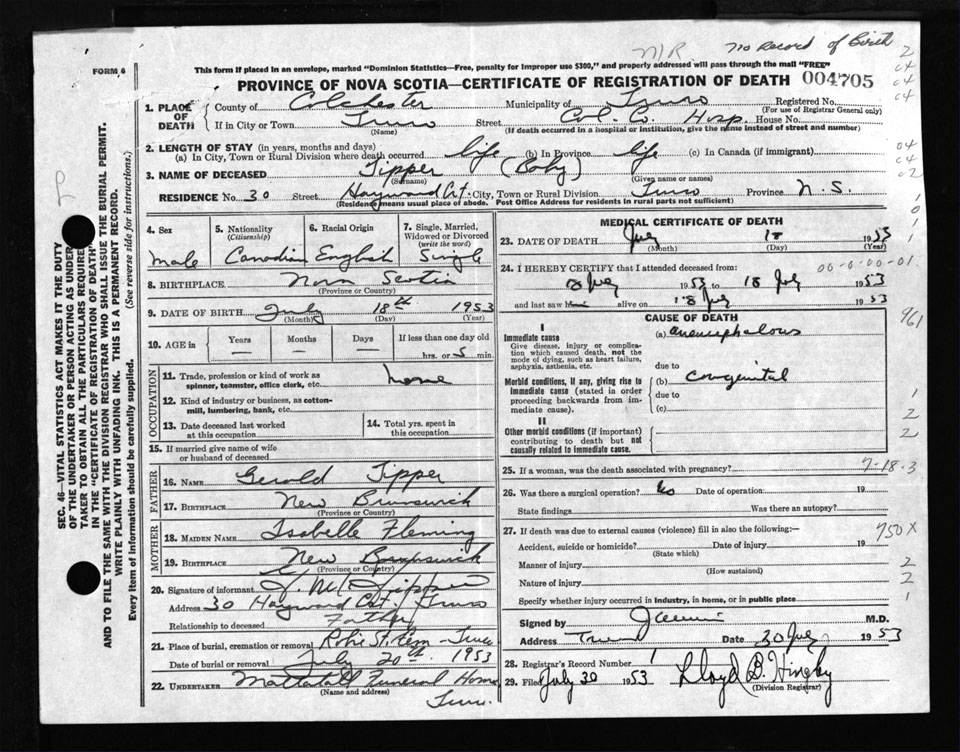 N/R No Record of Birth
FORM 6
This form if placed in an envelope, marked "Dominion Statistics—Free, penalty for improper use $300," and properly addressed will pass through the mail "FREE"
PROVINCE OF NOVA SCOTIA—CERTIFICATE OF REGISTRATION OF DEATH 004705
1. PLACE OF DEATH
County of Colchester Municipality of Truro Registered No.
(For use of Registrar General only)
If in City or Town Truro Street Col. Co. Hosp. House No.
(Name) (If death occurred in a hospital or institution, give the name instead of street and number)
2. LENGTH OF STAY (in years, months and days)
(a) In City, Town or Rural Division where death occurred life (b) In Province life (c) In Canada (if immigrant)
3. NAME OF DECEASED Tipper (Baby)
(Surname) (Given name or names)
RESIDENCE No. 30 Street Hayward Crt. City, Town or Rural Division Truro Province N.S.
(Residence means usual place of abode. Post Office Address for residents in rural parts not sufficient)
4. Sex 5. Nationality (Citizenship) 6. Racial Origin 7. Single, Married, Widowed or Divorced (write the word)
male Canadian English Single
8. BIRTHPLACE Nova Scotia
(Province or Country)
9. DATE OF BIRTH July 18th 1953
(Month) (Day) (Year)
10. AGE in Years Months Days If less than one day old
— — — hrs. or 5 min.
OCCUPATION
11. Trade, profession or kind of work as spinner, teamster, office clerk, etc. none
12. Kind of industry or business, as cotton-mill, lumbering, bank, etc.
13. Date deceased last worked at this occupation
14. Total yrs. spent in this occupation
15. If married give name of wife or husband of deceased
FATHER
16. NAME Gerold Tipper
17. BIRTHPLACE New Brunswick
(Province or Country)
MOTHER
18. MAIDEN NAME Isabelle Fleming
19. BIRTHPLACE New Brunswick
(Province or Country)
20. Signature of informant Tipper
Address 30 Hayward Crt. Truro
Relationship to deceased Father
21. Place of burial, cremation or removal Robie St. Cem - Truro
Date of burial or removal July 20th. 1953
22. UNDERTAKER Mattatall Funeral Home
(Name and address)
Truro.
MEDICAL CERTIFICATE OF DEATH
23. DATE OF DEATH July 18 1953
(Month) (Day) (Year)
24. I HEREBY CERTIFY that I attended deceased from:
00-0-00-01
18 July 1953 to 18 July 1953
and last saw him alive on 18 July 1953
CAUSE OF DEATH
I
Immediate cause
Give disease, injury or complication which caused death, not the mode of dying, such as heart failure, asphyxia, asthenia, etc.
(a) anencephalous
due to
Morbid conditions, if any, giving rise to immediate cause (stated in order proceeding backwards from immediate cause).
(b) Congenital
due to
(c)
II
Other morbid conditions (if important) contributing to death but not causally related to immediate cause.
25. If a woman, was the death associated with pregnancy? 7-18-3
26. Was there a surgical operation? No Date of operation: 19
State findings Was there an autopsy?
27. If death was due to external causes (violence) fill in also the following:—
Accident, suicide or homicide? Date of injury 19
(State which)
Manner of injury
(How sustained)
Nature of injury
Specify whether injury occurred in industry, in home, or in public place
Signed by M.D.
Address Truro Date 30 July 1953
28. Registrar's Record Number 1
29. Filed July 30 1953 Lloyd B. Hingley
(Division Registrar)
SEC. 46—VITAL STATISTICS ACT MAKES IT THE DUTY
OF THE UNDERTAKER OR PERSON ACTING AS UNDERTAKER
TO OBTAIN ALL THE PARTICULARS REQUIRED
IN THE "CERTIFICATE OF REGISTRATION OF DEATH"
AND TO FILE THE SAME WITH THE DIVISION REGISTRAR WHO SHALL ISSUE THE BURIAL PERMIT.
WRITE PLAINLY WITH UNFADING INK. THIS IS A PERMANENT RECORD.
Every item of information should be carefully supplied. (See reverse side for instructions.)
2
04
04
04
04
02
1
0
1
961
1
2
2
750 X
2
2
1